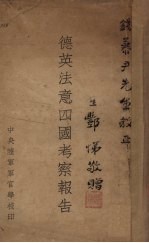 錢慕尹先生
生 酆悌敬贈
德英法意四國考察報告
中央陸軍軍官學校印